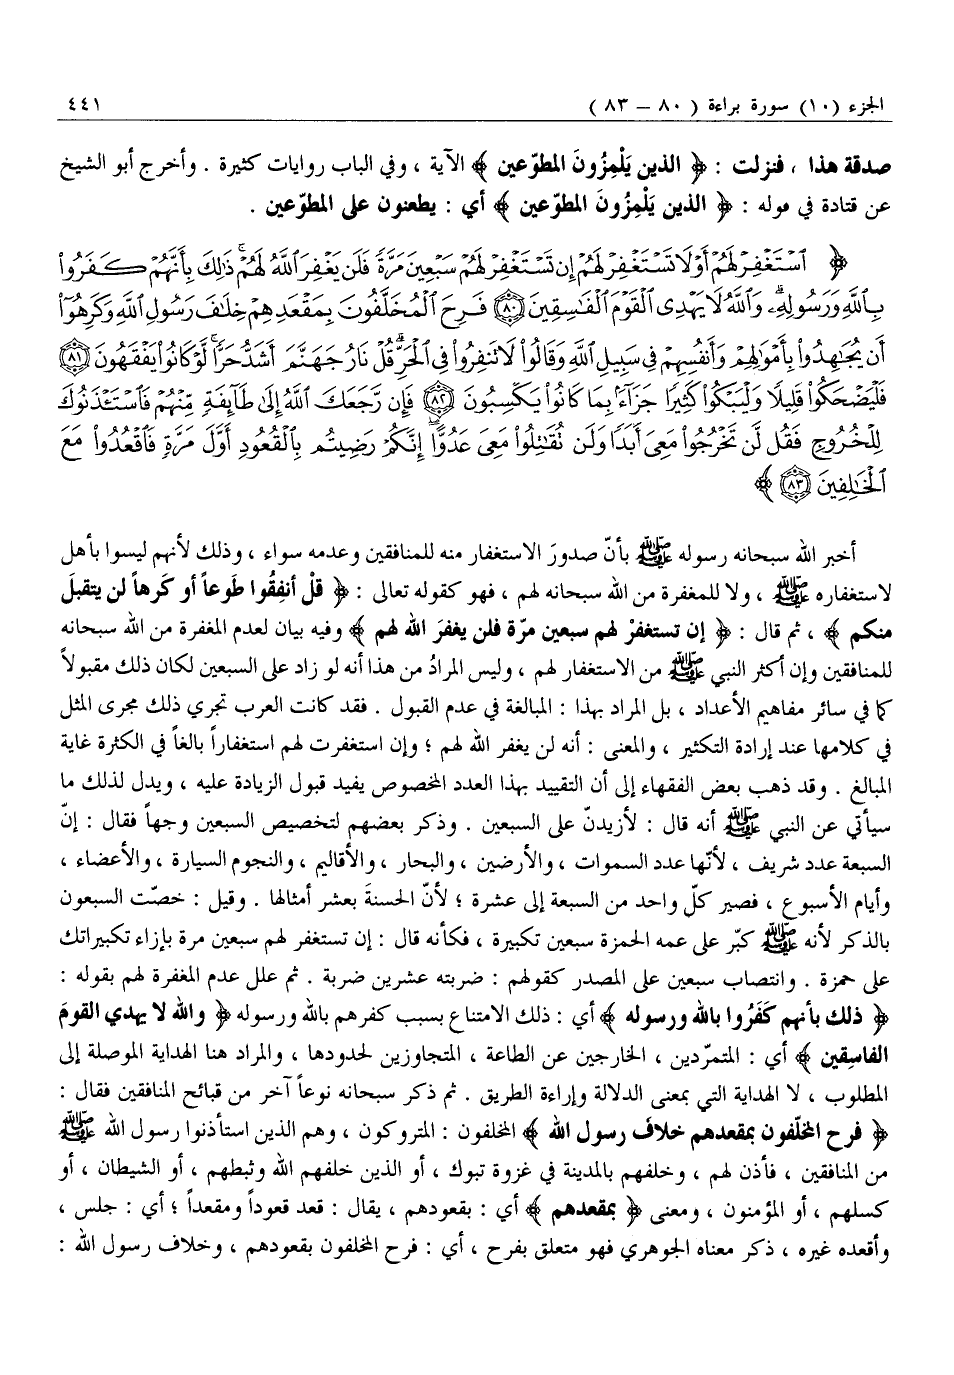 الجزء (١٠) سورة براءة ( ٨٠ – ٨٣ ) ٤٤١
صدقة هذا ، فنزلت : ﴿ الذين يَلْمِزُونَ المطوّعين ﴾ الآية ، وفي الباب روايات كثيرة . وأخرج أبو الشيخ
عن قتادة في قوله : ﴿ الذين يَلْمِزُونَ المطوّعين ﴾ أي : يطعنون على المطوّعين .
﴿ ٱسْتَغْفِرْ لَهُمْ أَوْ لَا تَسْتَغْفِرْ لَهُمْ إِن تَسْتَغْفِرْ لَهُمْ سَبْعِينَ مَرَّةً فَلَن يَغْفِرَ ٱللَّهُ لَهُمْ ۚ ذَٰلِكَ بِأَنَّهُمْ كَفَرُوا۟
بِٱللَّهِ وَرَسُولِهِۦ ۗ وَٱللَّهُ لَا يَهْدِى ٱلْقَوْمَ ٱلْفَـٰسِقِينَ ٨٠ فَرِحَ ٱلْمُخَلَّفُونَ بِمَقْعَدِهِمْ خِلَـٰفَ رَسُولِ ٱللَّهِ وَكَرِهُوٓا۟
أَن يُجَـٰهِدُوا۟ بِأَمْوَٰلِهِمْ وَأَنفُسِهِمْ فِى سَبِيلِ ٱللَّهِ وَقَالُوا۟ لَا تَنفِرُوا۟ فِى ٱلْحَرِّ ۗ قُلْ نَارُ جَهَنَّمَ أَشَدُّ حَرًّا ۚ لَّوْ كَانُوا۟ يَفْقَهُونَ ٨١
فَلْيَضْحَكُوا۟ قَلِيلًا وَلْيَبْكُوا۟ كَثِيرًا جَزَآءًۢ بِمَا كَانُوا۟ يَكْسِبُونَ ٨٢ فَإِن رَّجَعَكَ ٱللَّهُ إِلَىٰ طَآئِفَةٍ مِّنْهُمْ فَٱسْتَـْٔذَنُوكَ
لِلْخُرُوجِ فَقُل لَّن تَخْرُجُوا۟ مَعِىَ أَبَدًا وَلَن تُقَـٰتِلُوا۟ مَعِىَ عَدُوًّا ۖ إِنَّكُمْ رَضِيتُم بِٱلْقُعُودِ أَوَّلَ مَرَّةٍ فَٱقْعُدُوا۟ مَعَ
ٱلْخَـٰلِفِينَ ٨٣ ﴾
أخبر الله سبحانه رسوله ﷺ بأنّ صدورَ الاستغفار منه للمنافقين وعدمه سواء ، وذلك لأنهم ليسوا بأهل
لاستغفاره ﷺ ، ولا للمغفرة من الله سبحانه لهم ، فهو كقوله تعالى : ﴿ قلْ أنفِقُوا طَوعاً أو كَرهاً لن يتقبلَ
منكم ﴾ ، ثم قال : ﴿ إن تستغفرْ لهم سبعين مرّة فلن يغفرَ الله لهم ﴾ وفيه بيان لعدم المغفرة من الله سبحانه
للمنافقين وإن أكثر النبي ﷺ من الاستغفار لهم ، وليس المرادُ من هذا أنه لو زاد على السبعين لكان ذلك مقبولاً
كما في سائر مفاهيم الأعداد ، بل المراد بهذا : المبالغة في عدم القبول . فقد كانت العرب تجري ذلك مجرى المثل
في كلامها عند إرادة التكثير ، والمعنى : أنه لن يغفر الله لهم ؛ وإن استغفرت لهم استغفاراً بالغاً في الكثرة غاية
المبالغ . وقد ذهب بعض الفقهاء إلى أن التقييد بهذا العدد المخصوص يفيد قبول الزيادة عليه ، ويدل لذلك ما
سيأتي عن النبي ﷺ أنه قال : لأزيدنّ على السبعين . وذكر بعضهم لتخصيص السبعين وجهاً فقال : إنّ
السبعة عدد شريف ، لأنّها عدد السموات ، والأرضين ، والبحار ، والأقاليم ، والنجوم السيارة ، والأعضاء ،
وأيام الأسبوع ، فصير كلّ واحد من السبعة إلى عشرة ؛ لأنّ الحسنةَ بعشر أمثالها . وقيل : خصّت السبعون
بالذكر لأنه ﷺ كبّر على عمه الحمزة سبعين تكبيرة ، فكأنه قال : إن تستغفر لهم سبعين مرة بإزاء تكبيراتك
على حمزة . وانتصاب سبعين على المصدر كقولهم : ضربته عشرين ضربة . ثم علل عدم المغفرة لهم بقوله :
﴿ ذلك بأنهم كَفَرُوا بالله ورسوله ﴾ أي : ذلك الامتناع بسبب كفرهم بالله ورسوله ﴿ والله لا يهدي القومَ
الفاسِقين ﴾ أي : المتمرّدين ، الخارجين عن الطاعة ، المتجاوزين لحدودها ، والمراد هنا الهداية الموصلة إلى
المطلوب ، لا الهداية التي بمعنى الدلالة وإراءة الطريق . ثم ذكر سبحانه نوعاً آخر من قبائح المنافقين فقال :
﴿ فرح المخلّفون بمقعدهم خلافَ رسول الله ﴾ المخلفون : المتروكون ، وهم الذين استأذنوا رسول الله ﷺ
من المنافقين ، فأذن لهم ، وخلفهم بالمدينة في غزوة تبوك ، أو الذين خلفهم الله وثبطهم ، أو الشيطان ، أو
كسلهم ، أو المؤمنون ، ومعنى ﴿ بمقعدهم ﴾ أي : بقعودهم ، يقال : قعد قعوداً ومقعداً ؛ أي : جلس ،
وأقعده غيره ، ذكر معناه الجوهري فهو متعلق بفرح ، أي : فرح المخلفون بقعودهم ، وخلاف رسول الله :